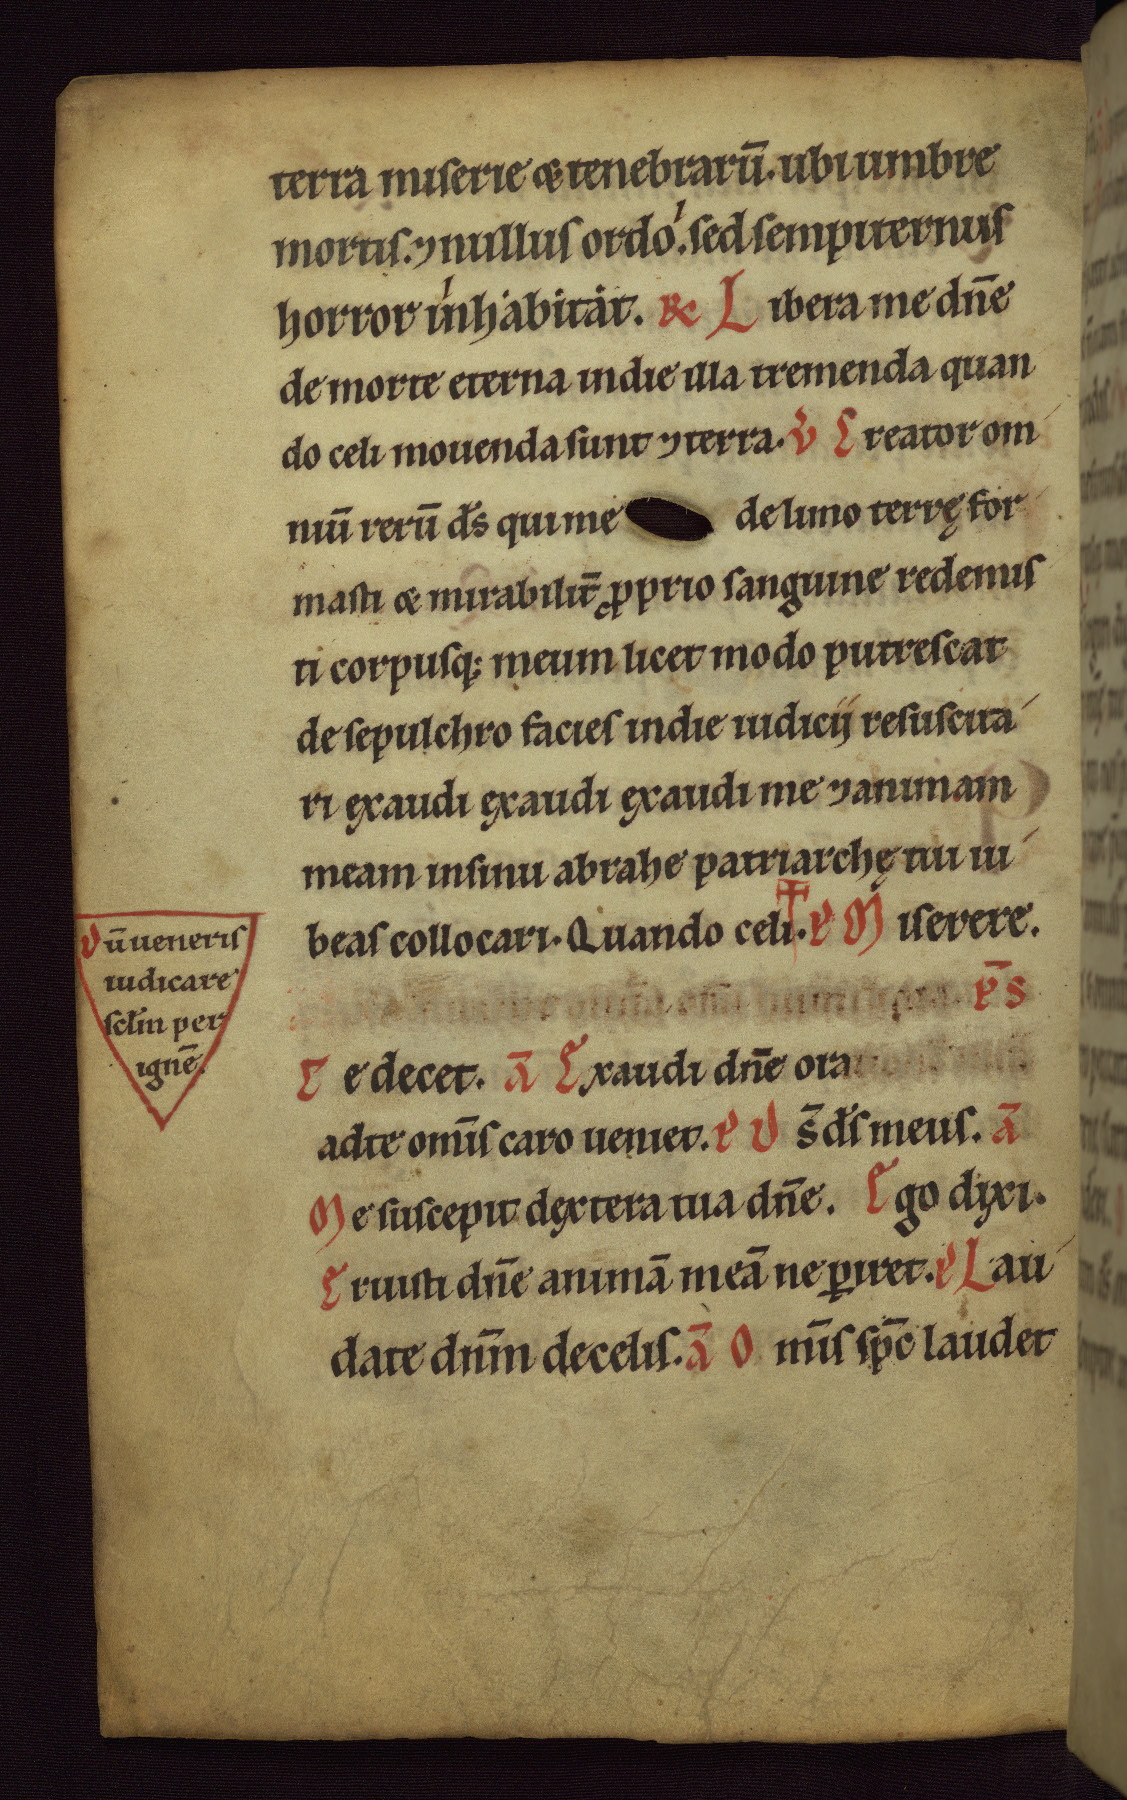 terra miserie & tenebrarū. ubi umbre
mortis. ⁊ nullus ordo. sed sempiternus
horror inhabitat. R̷ Libera me dn̄e
de morte eterna in die illa tremenda quan
do celi mouenda sunt ⁊ terra. V̷ Creator om
niū rerū ds̄ qui me de limo terrę for
masti & mirabilit̄ ꝓprio sanguine redemis
ti corpusq; meum licet modo putrescat
de sepulchro facies in die iudicij resuscita
ri exaudi exaudi exaudi me ⁊ animam
meam in sinu abrahe patriarchę tui iu
beas collocari. Quando celi. P Miserere.
P̄S
Te decet. ā Exaudi dn̄e ora
ad te omīs caro ueniet. P D s̄ ds̄ meus. ā
Me suscepit dextera tua dn̄e. Ego dixi.
Eruisti dn̄e animā meā ne ꝑiret. P Lau
date dn̄m de celis. ā Omīs sp̄c laudet
Dū ueneris
iudicare
sclm̄ per
ignē.